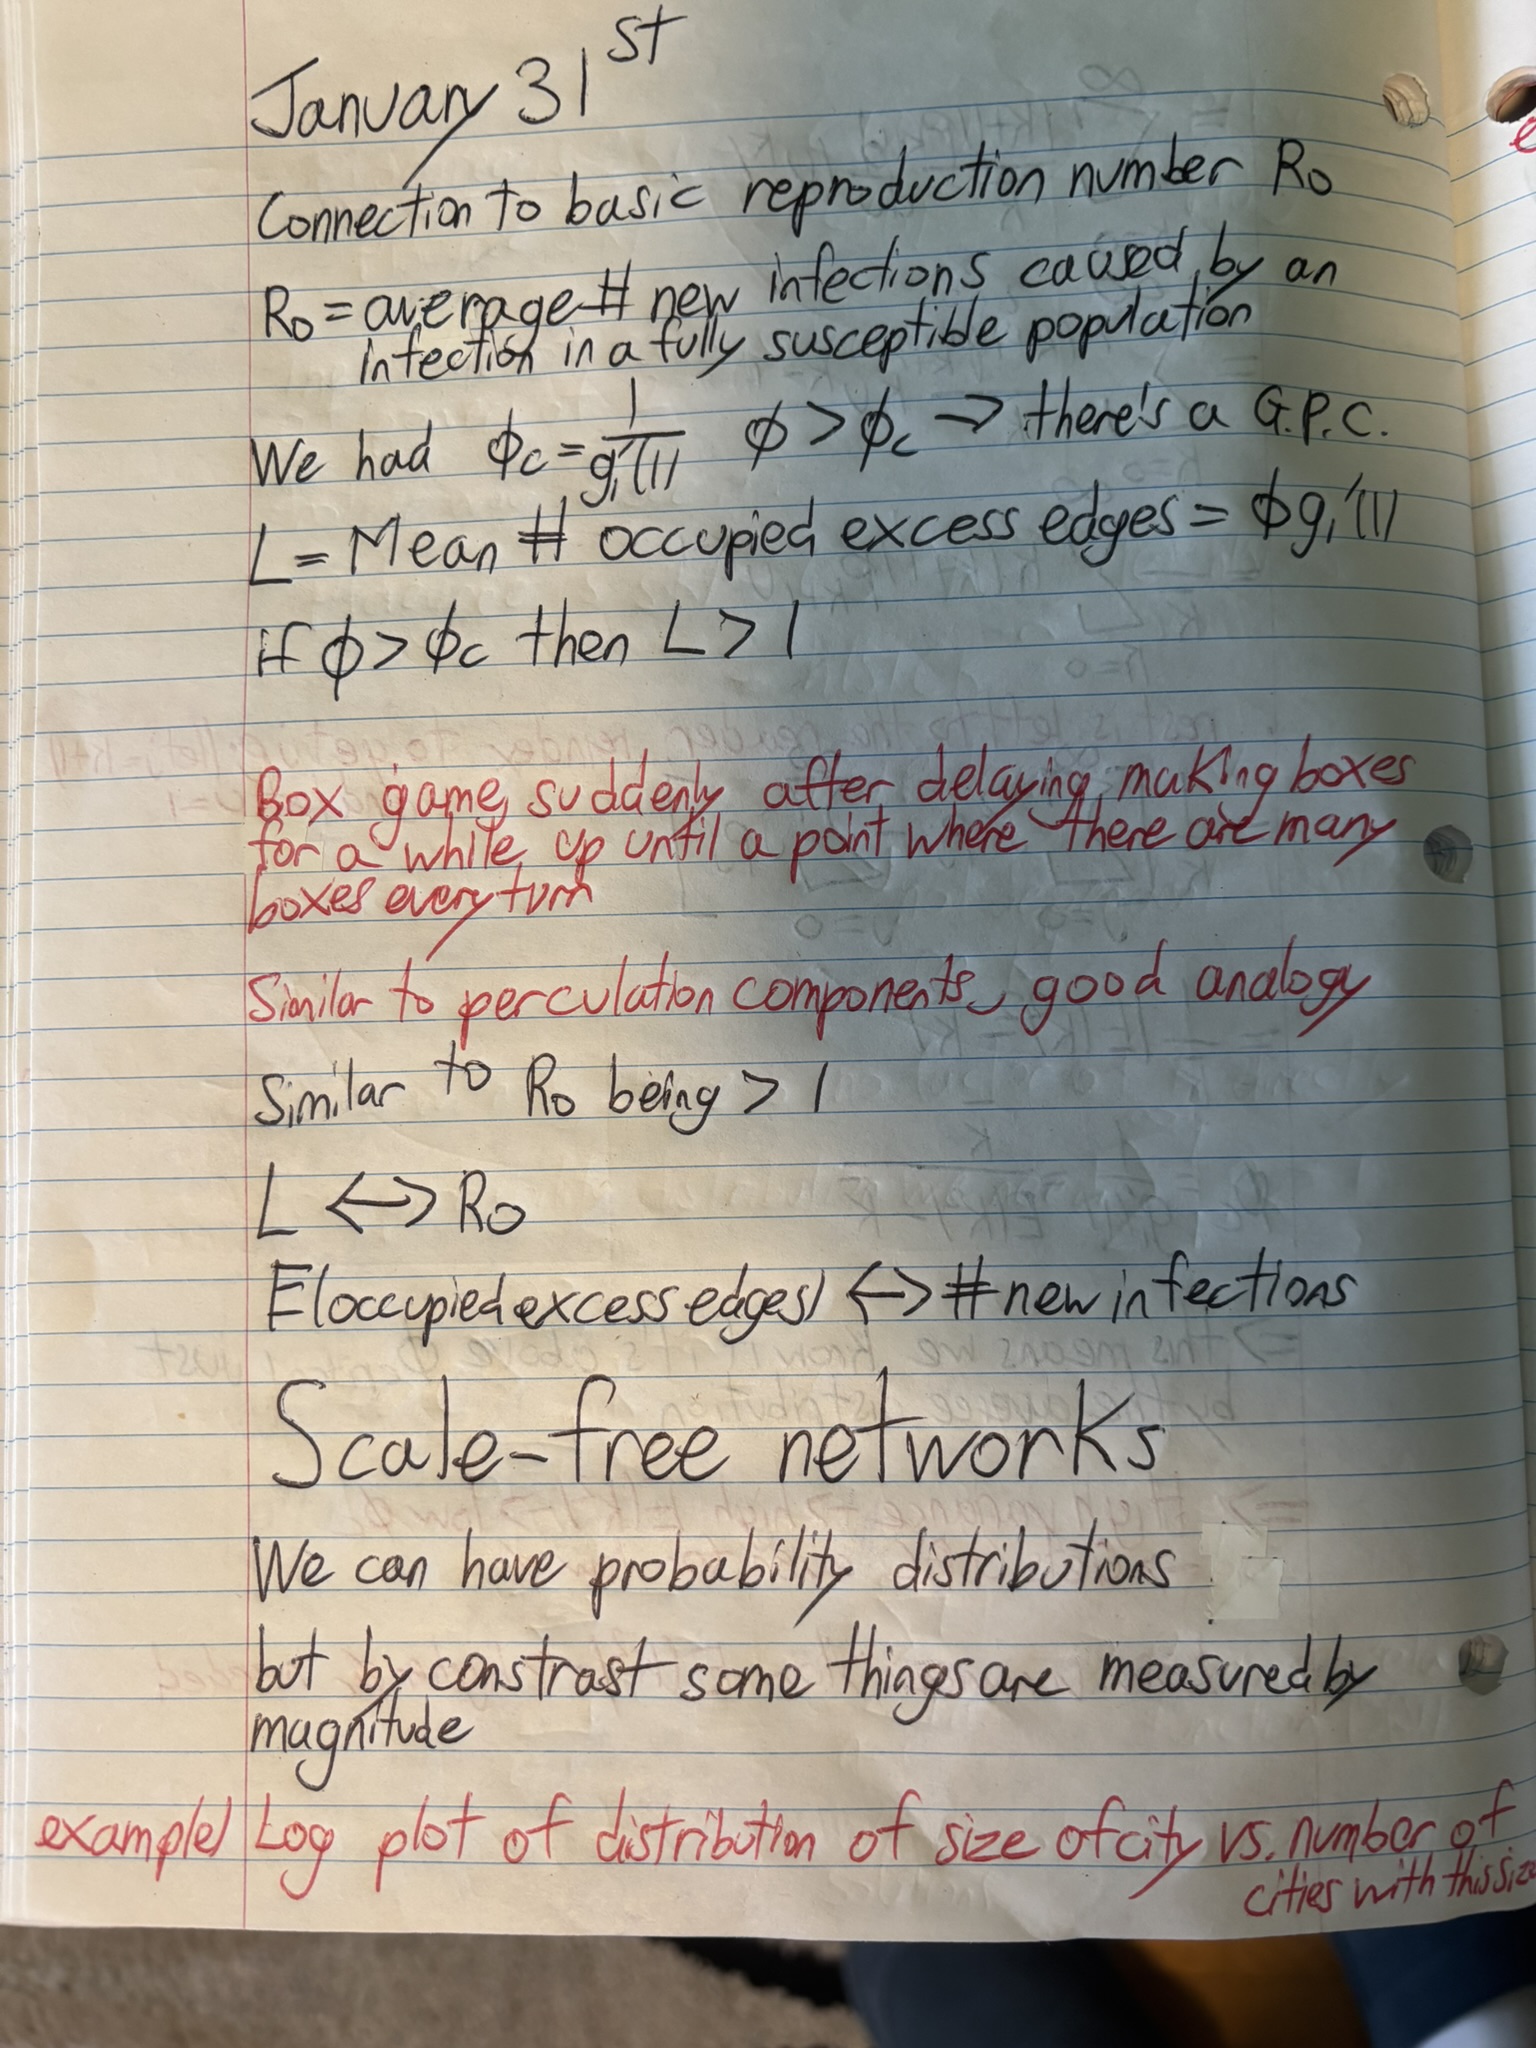 January 31st
Connection to basic reproduction number R₀
R₀ = average # new infections caused by an
infection in a fully susceptible population
We had ϕc = 1/g₁'(1) ϕ > ϕc → there's a G.P.C.
L = Mean # occupied excess edges = ϕg₁'(1)
if ϕ > ϕc then L > 1
Box game, suddenly after delaying making boxes
for a while, up until a point where there are many
boxes every turn
Similar to perculation components, good analogy
Similar to R₀ being > 1
L ↔ R₀
E(occupied excess edges) ↔ # new infections
Scale-free networks
We can have probability distributions
but by constrast some things are measured by
magnitude
example) Log plot of distribution of size of city vs. number of
cities with this size